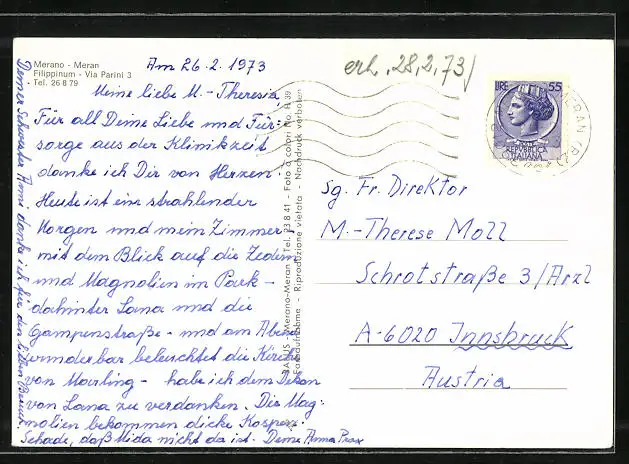 Merano - Meran
Filippinum - Via Parini 3
Tel. 26 8 79
Am 26.2.1973
erh. 28.2.73
Meine liebe M.-Theresia,
Für all Deine Liebe und Für-
sorge aus der Klinikzeit
danke ich Dir von Herzen!
Heute ist eine strahlender
Morgen und mein Zimmer
mit dem Blick auf die Zedern
und Magnolien im Park -
dahinter Lana und die
Gampenstraße - und am Abend
wunderbar beleuchtet die Kirche
von Marling - habe ich dem Dekan
von Lana zu verdanken. Die Mag-
nolien bekommen dicke Knospen.
Schade, daß Mida nicht da ist. Deine Anna Prax
Deiner Schwester Anni danke ich für den lieben Besuch.
Merano-Meran - Tel. 23 8 41 - Foto a colori No. H 39
Riproduzione vietata - Nachdruck verboten
LIRE 55
REPVBBLICA
ITALIANA
MERAN
Sg. Fr. Direktor
M.-Therese Moll
Schrotstraße 3/Arzl
A-6020 Innsbruck
Austria